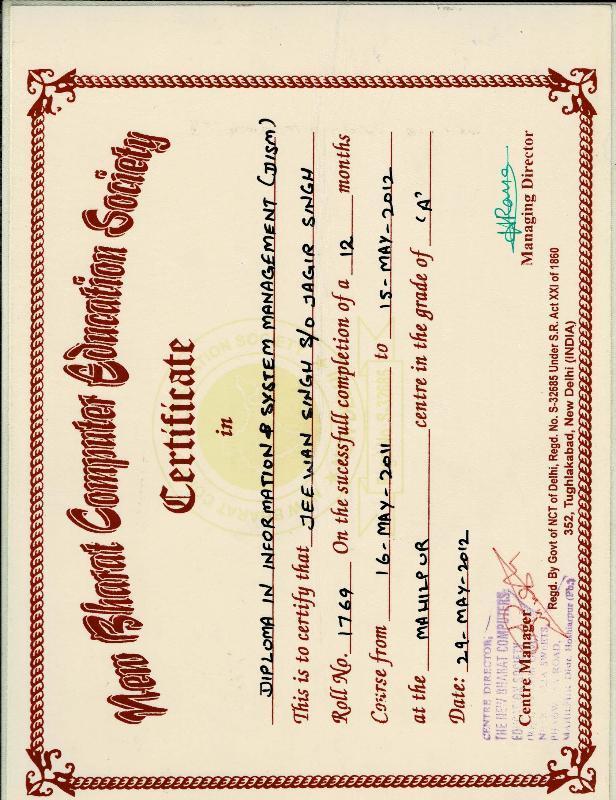 New Bharat Computer Education Society
Certificate
in
DIPLOMA IN INFORMATION & SYSTEM MANAGEMENT (DISM)
This is to certify that JEEWAN SINGH S/O JAGIR SINGH
Roll No. 1769 On the sucessfull completion of a 12 months
Course from 16-MAY-2011 to 15-MAY-2012
at the MAHILPUR centre in the grade of 'A'
Date: 29-MAY-2012
CENTRE DIRECTOR,
THE NEW BHARAT COMPUTERS
EDUCATION SOCIETY
Centre Manager
Managing Director
ROAD,
MAHILPUR Distt. Hoshiarpur (Pb.)
Regd. By Govt of NCT of Delhi, Regd. No. S-32685 Under S.R. Act XXI of 1860
352, Tughlakabad, New Delhi (INDIA)